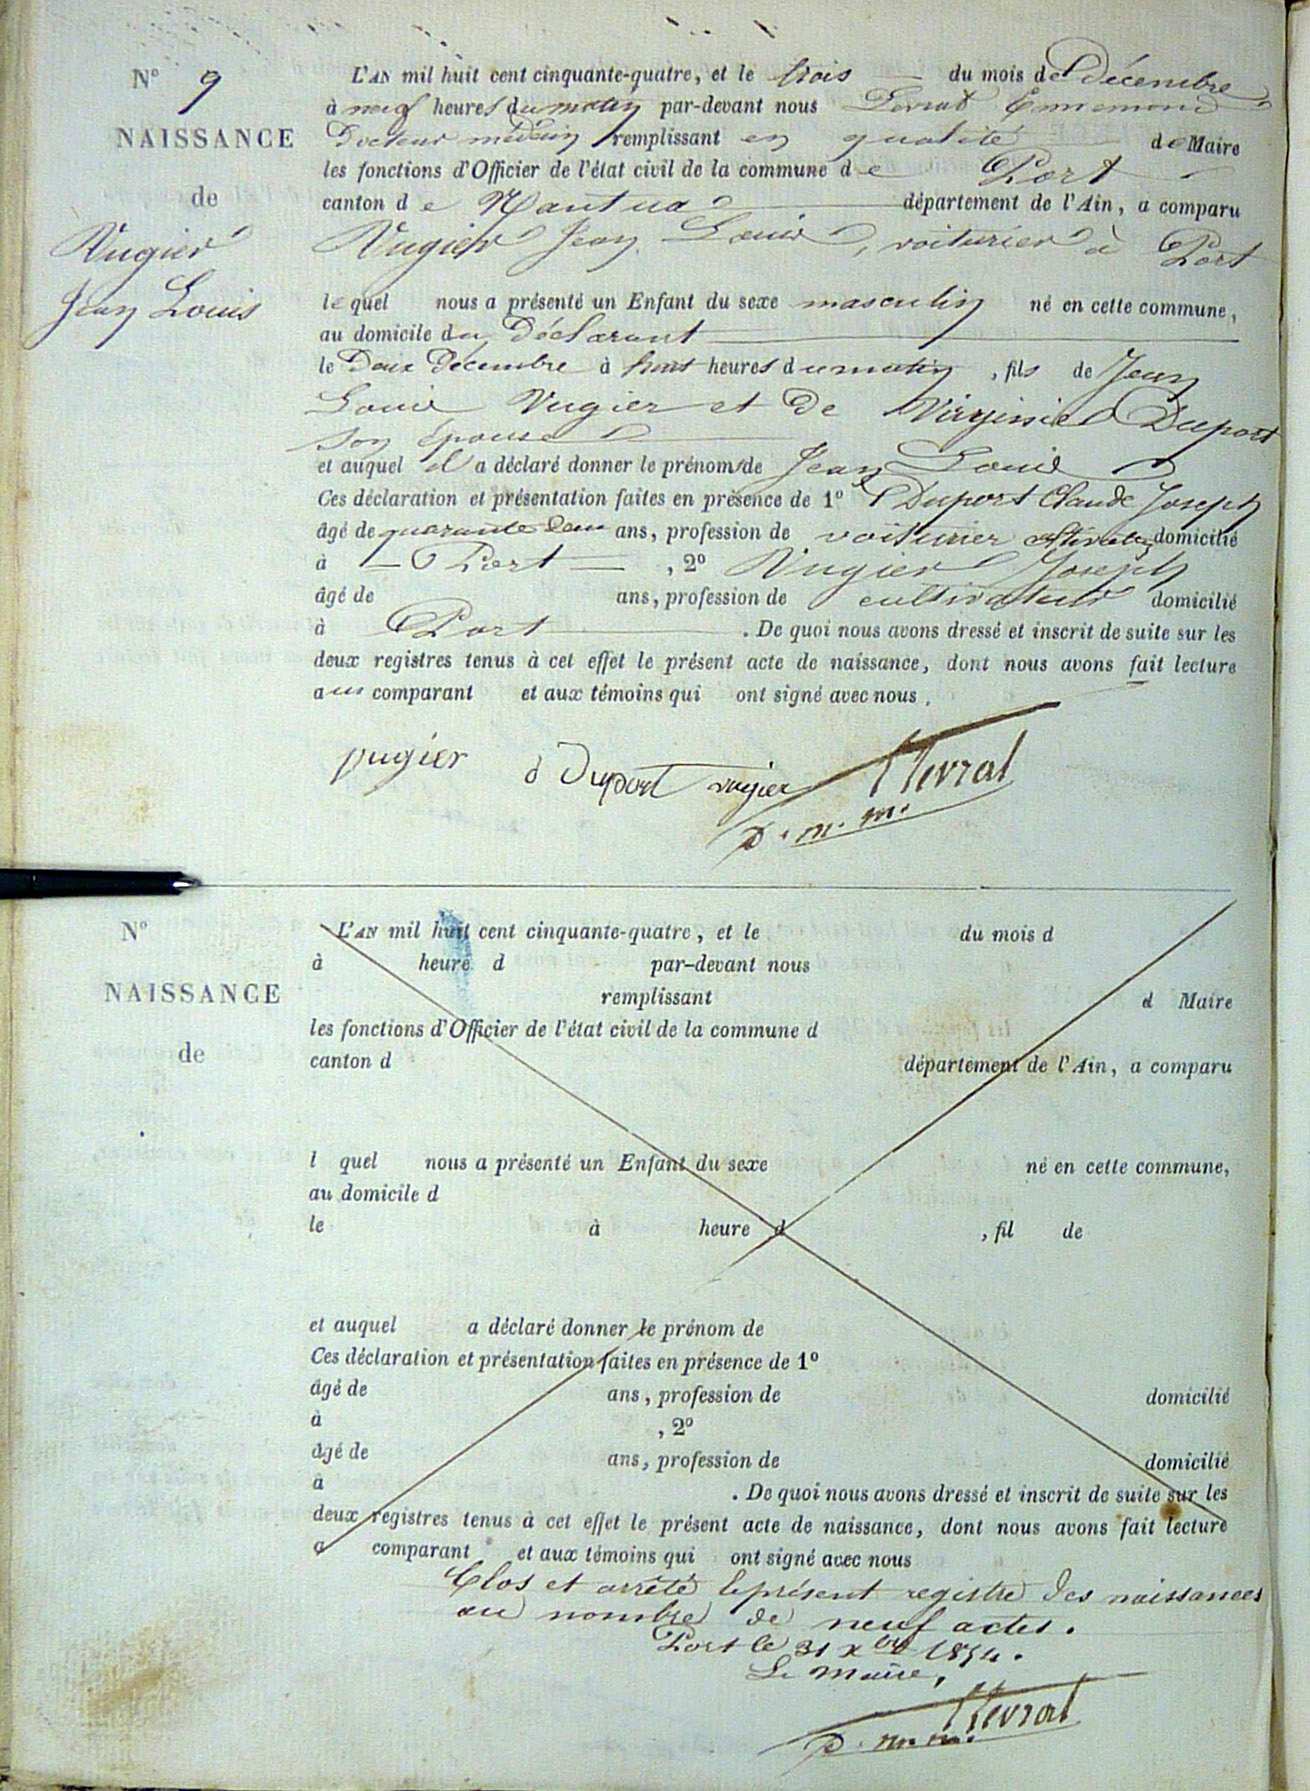 N° 9
NAISSANCE
de
Vugier
Jean Louis
L'AN mil huit cent cinquante-quatre, et le trois du mois de Décembre
à neuf heures du matin par-devant nous Levrat Ennemond
Docteur médecin remplissant en qualité de Maire
les fonctions d'Officier de l'état civil de la commune de Port
canton de Nantua département de l'Ain, a comparu
Vugier Jean Louis, voiturier à Port
lequel nous a présenté un Enfant du sexe masculin né en cette commune,
au domicile du Déclarant
le Deux Décembre à heures du matin, fils de Jean
Louis Vugier et de Virginie Duport
son épouse
et auquel il a déclaré donner le prénoms de Jean Louis
Ces déclaration et présentation faites en présence de 1° Duport Claude Joseph
âgé de quarante deux ans, profession de voiturier domicilié
à Port, 2° Vugier Joseph
âgé de ans, profession de cultivateur domicilié
à Port. De quoi nous avons dressé et inscrit de suite sur les
deux registres tenus à cet effet le présent acte de naissance, dont nous avons fait lecture
aux comparant et aux témoins qui ont signé avec nous.
vugier Duport vugier Levrat
D. m. m.
N°
NAISSANCE
de
L'AN mil huit cent cinquante-quatre, et le du mois d
à heure d par-devant nous
remplissant d Maire
les fonctions d'Officier de l'état civil de la commune d
canton d département de l'Ain, a comparu
l quel nous a présenté un Enfant du sexe né en cette commune,
au domicile d
le à heure d , fil de
et auquel a déclaré donner le prénom de
Ces déclaration et présentation faites en présence de 1°
âgé de ans, profession de domicilié
à , 2°
âgé de ans, profession de domicilié
à . De quoi nous avons dressé et inscrit de suite sur les
deux registres tenus à cet effet le présent acte de naissance, dont nous avons fait lecture
a comparant et aux témoins qui ont signé avec nous
Clos et arrêté le présent registre des naissances
au nombre de neuf actes.
Port le 31 Xbre 1854.
Le Maire,
Levrat
D. m. m.